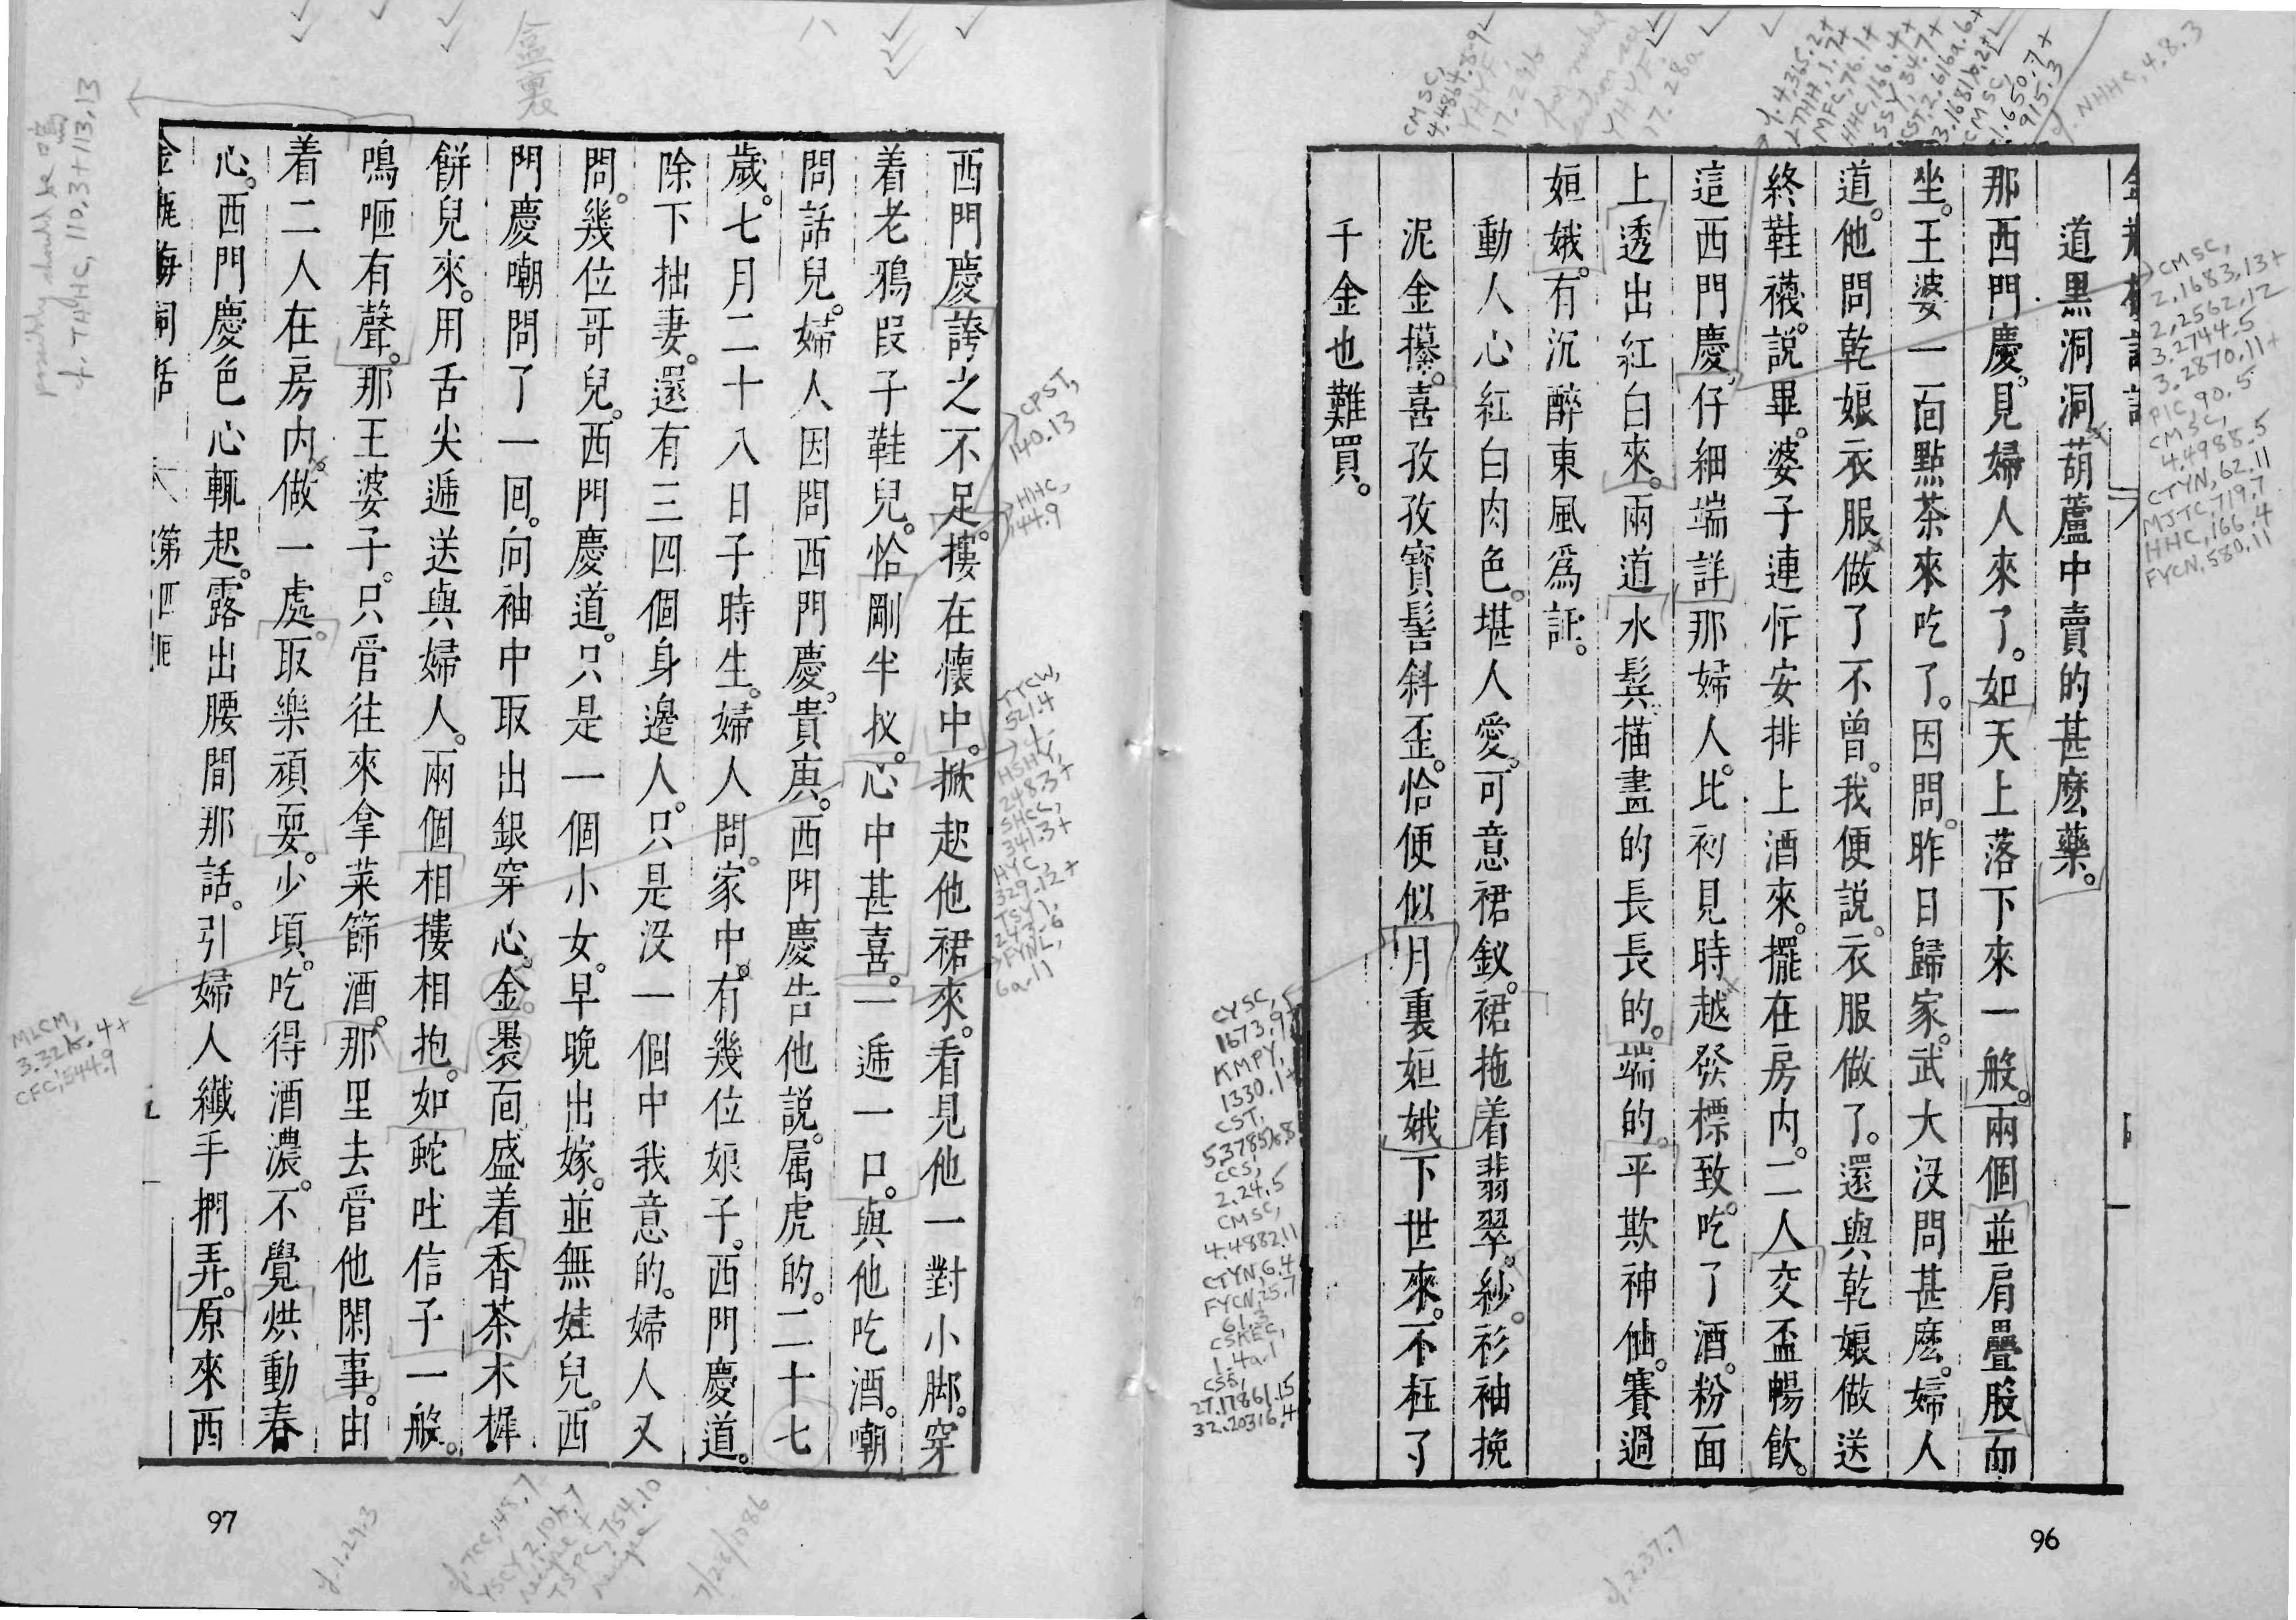 道黑洞洞葫蘆中賣的甚麽藥。
那西門慶。見婦人來了。如天上落下來一般。兩個並肩疊股而
坐。王婆一面點茶來吃了。因問。昨日歸家。武大没問甚麽。婦人
道。他問乾娘衣服做了不曾。我便説。衣服做了。還與乾娘做送
終鞋襪。説畢。婆子連忙安排上酒來。擺在房内。二人交盃暢飲。
這西門慶。仔細端詳那婦人。比初見時越發標致。吃了酒。粉面
上透出紅白來。兩道水鬂描畫的長長的。端的。平欺神仙。賽過
姮娥。有沉醉東風爲証。
動人心紅白肉色。堪人愛。可意裙釵。裙拖着翡翠。紗。衫袖挽
泥金攥。喜孜孜寳髻斜歪。恰便似月裏姮娥下世來。不枉了
千金也難買。
96
西門慶誇之不足。摟在懷中。掀起他裙來。看見他一對小脚。穿
着老鴉段子鞋兒。恰剛半扠。心中甚喜。一遞一口。與他吃酒。嘲
問話兒。婦人因問西門慶。貴庚。西門慶告他説。属虎的。二十七
歲。七月二十八日子時生。婦人問。家中。有幾位娘子。西門慶道。
除下拙妻。還有三四個身邊人。只是没一個中我意的。婦人又
問。幾位哥兒。西門慶道。只是一個小女。早晚出嫁。並無娃兒。西
門慶嘲問了一回。向袖中取出銀穿心。金褁面盛着香茶木樨
餅兒來。用舌尖遞送與婦人。兩個相摟相抱。如蛇吐信子一般。
鳴咂有聲。那王婆子。只管往來拿菜篩酒。那里去管他閑事。由
着二人在房内做一處。取樂頑耍。少頃。吃得酒濃。不覺烘動春
心。西門慶色心輒起。露出腰間那話。引婦人纖手捫弄。原來西
金瓶梅詞話
第四囘
97
盒裏
possibly should be 嗚
cf. TAYHC, 110.3+113.13
CPST,
140.13
HHC,
144.9
TTCW,
521.4
MLCM,
CFC, 544.9
cf. 1.29.3
7/28/1086
cf. 2.37.7
cf. NHHC, 4.8.3
CMSC,
2.1683.13+
2.2562.12
3.2744.5
3.2870.11+
PIC, 90.5
CMSC,
4.4988.5
CTYN, 62.11
MJTC, 719.7
HHC, 166.4
FYCN, 580.11
CYSC,
1673.9+
KMPY,
1330.1+
CST,
CCS,
2.24.5
CMSC,
4.4882.11
CTYN, 6.4
FYCN, 25.7
61.3
CSKEC,
1.4a.1
CSS,
27.17861.15
32.20316.4